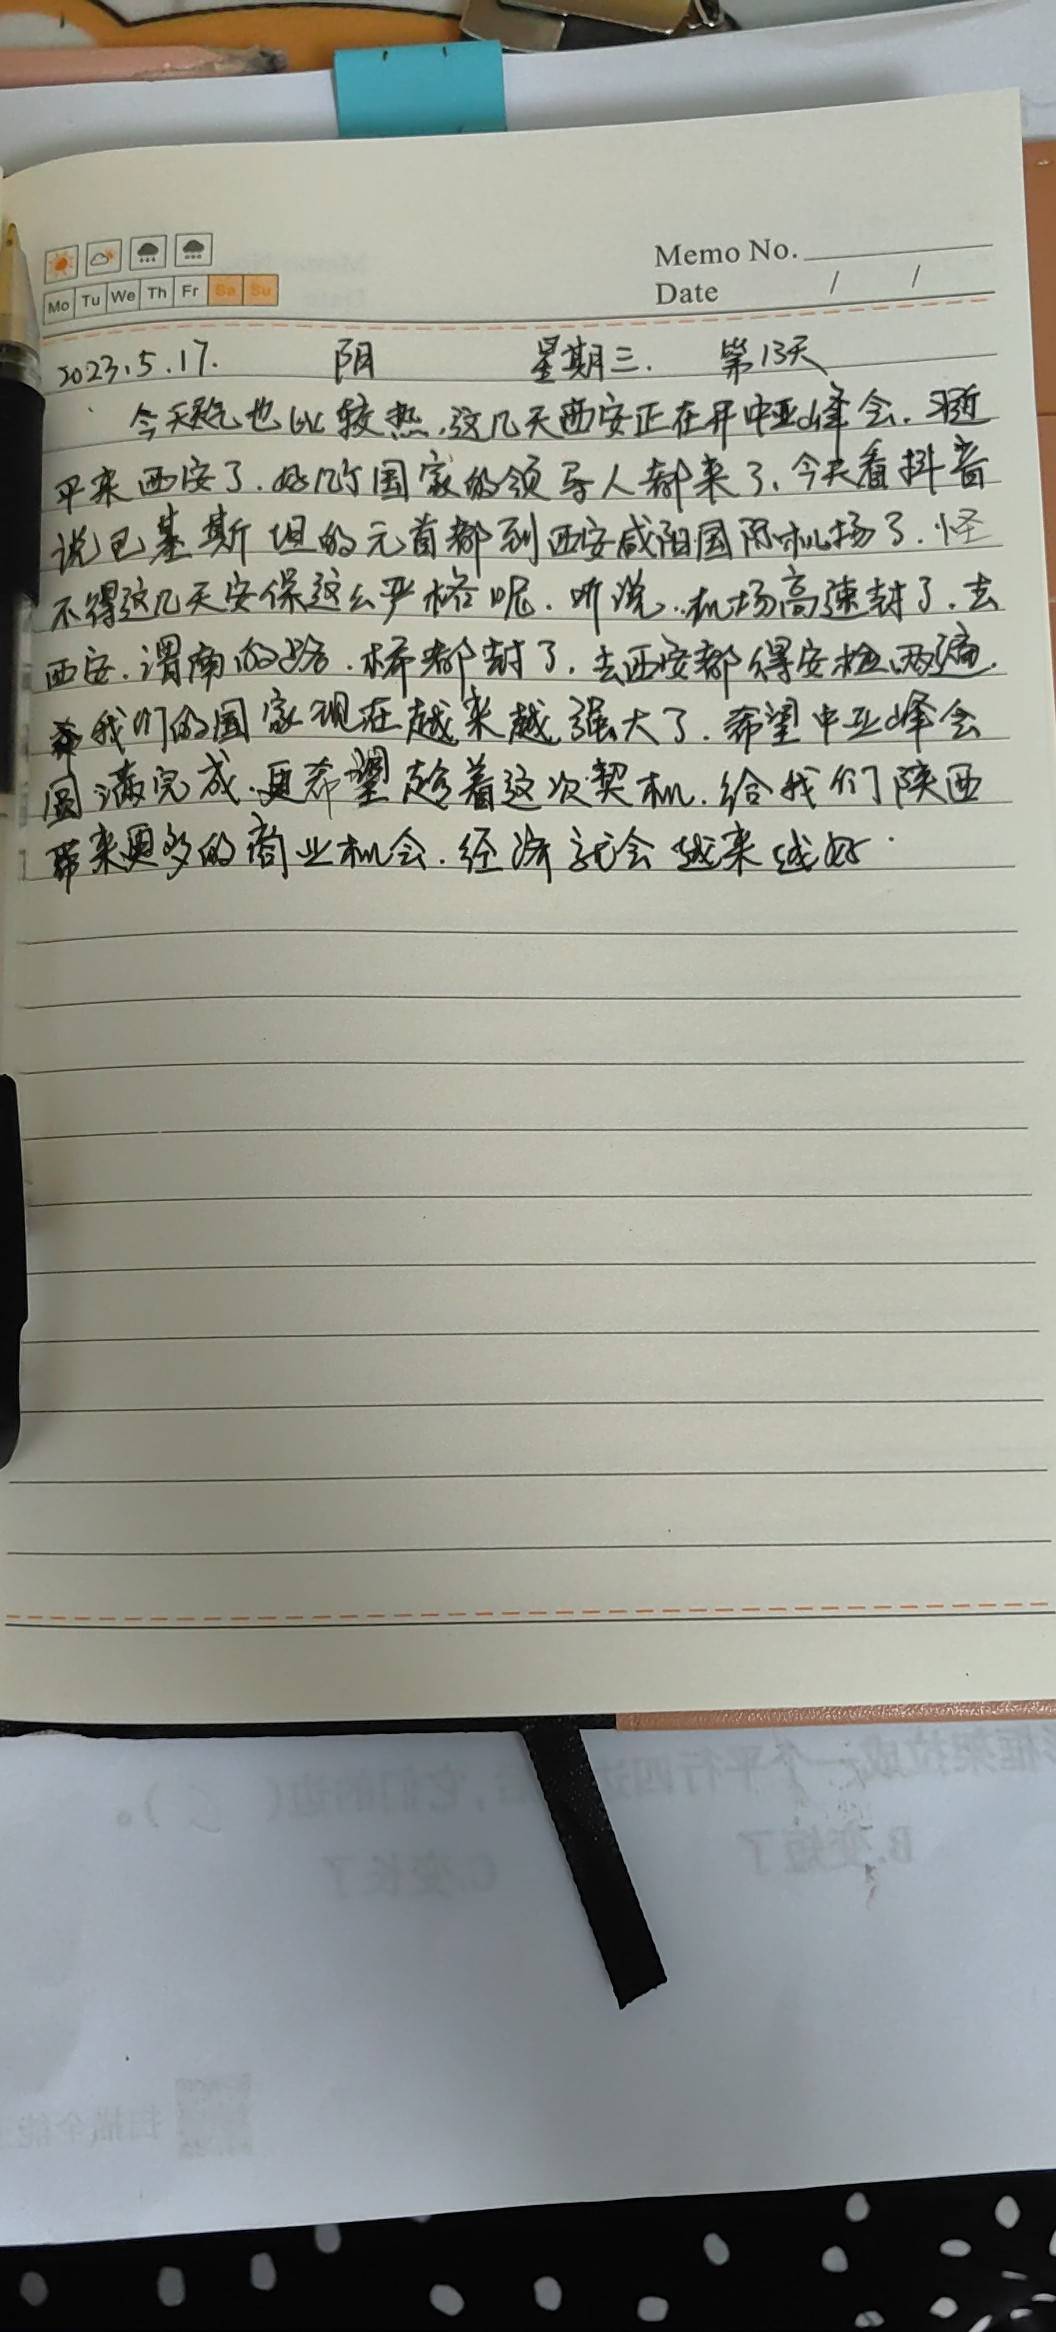 Memo No.
Mo Tu We Th Fr Sa Su
Date / /
2023.5.17. 阴 星期三. 第13天
今天天气也比较热.这几天西安正在开中亚峰会.习近
平来西安了.好几个国家的领导人都来了.今天看抖音
说巴基斯坦的元首都到西安咸阳国际机场了.怪
不得这几天安保这么严格呢.听说..机场高速封了.去
西安.渭南的路.桥都封了.去西安都得安检两遍.
我们的国家现在越来越强大了.希望中亚峰会
圆满完成.更希望趁着这次契机.给我们陕西
带来更多的商业机会.经济就会越来越好.
框架拉成一个平行四边 后,它们的边( )。
B.变短了 C.变长了
扫描全能